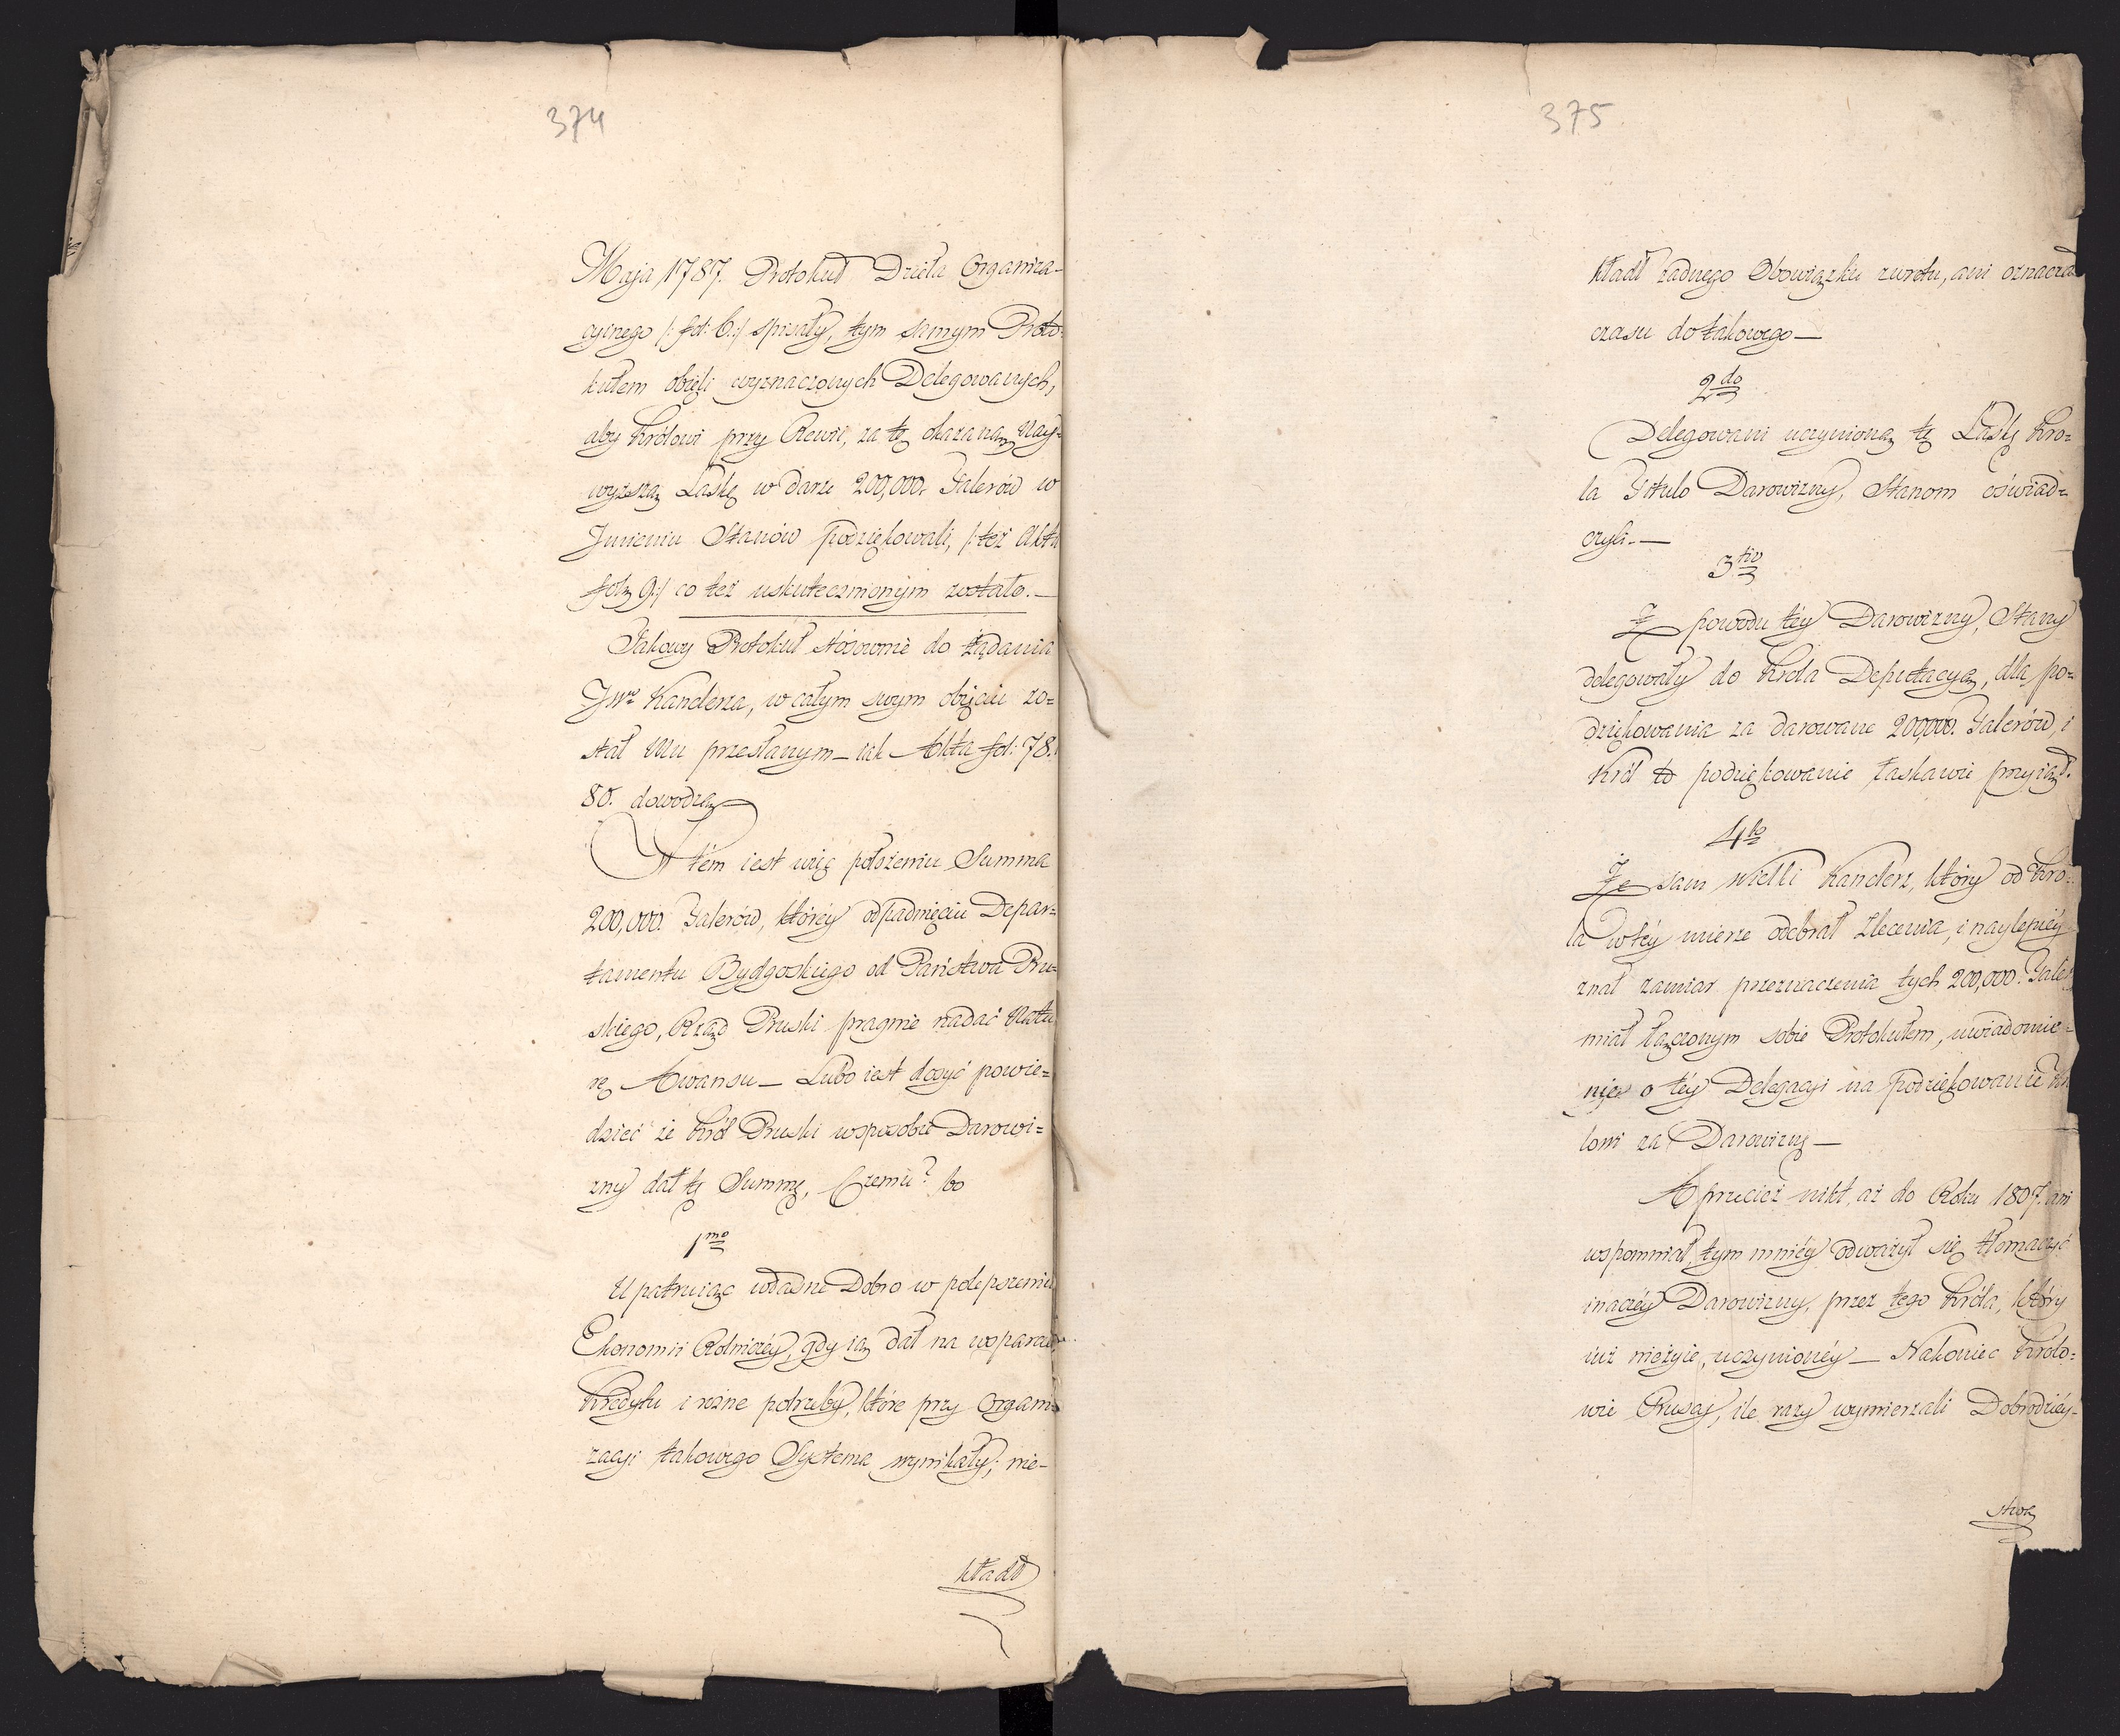 374
Maja 1787. Protokuł Dzieła Organiza-
cyinego /: fol: 6:/ spisały, tym samym Proto-
kułem obięli wyznaczonych Delegowanych,
aby Królowi przy Rewii, za tę okazaną Nay-
wyższą Łaskę w darze 200,000. Talerów w
Imieniu Stanów podziękowali, /: też Akta
fol: 9:/ co też uskutecznionym zostało. —
Takowy Protokuł stósownie do żądania
JWo Kanclerza, w całym swym obięciu zo=
stał Mu przesłanym — iak Akta fol: 78.
80. dowodzą
W tém iest więc położeniu Summa
200,000. Talerów, któréy odpadnięciu Depar=
tamentu Bydgoskiego od Państwa Pru-
skiego, Rząd Pruski pragnie nadać Natu
rę Awansu — Lubo iest dosyć powie=
dzieć że Król Pruski w sposobie Darowi=
zny dał tę Summę, Czemu? bo
1mo
Upatruiąc własne Dobro w polepszeniu
Ekonomii Rolniczéy, gdy ią dał na wsparcie
Kredytu i rożne potrzeby, które przy Organi-
zacyi takowego Systema wynikały; nie-
kładł
375
kładł żadnego Obowiązku zwrotu, ani oznaczał
czasu do takowego —
2do
Delegowani uczynioną tę Łaskę Kró=
la Titulo Darowizny, Stanom oświad=
czyli. —
3tio
Z powodu téy Darowizny, Stany
delegowały do Króla Deputacyą, dla po=
dziękowania za darowane 200,000. Talerów, i
Król to podziękowanie łaskawie przyiął.
4to
Że sam Wielki Kanclerz, który od Kró=
la w téy mierze odebrał Zlecenia, i naylepiéy
znał zamiar przeznaczenia tych 200,000. Taler
miał łączonym sobie Protokułem, uwiadomie=
nie o téy Delegacyi na podziękowanie Kró
lowi za Darowiznę —
A przecież nikt, aż do Roku 1807. ani
wspomniał, tym mniéy odważył się tłomaczyć
inaczéy Darowizny, przez tego Króla, który
iuż nieżyie, uczynionéy — Nakoniec Królo=
wie Pruscy, ile razy wymierzali Dobrodziéy-
stwa